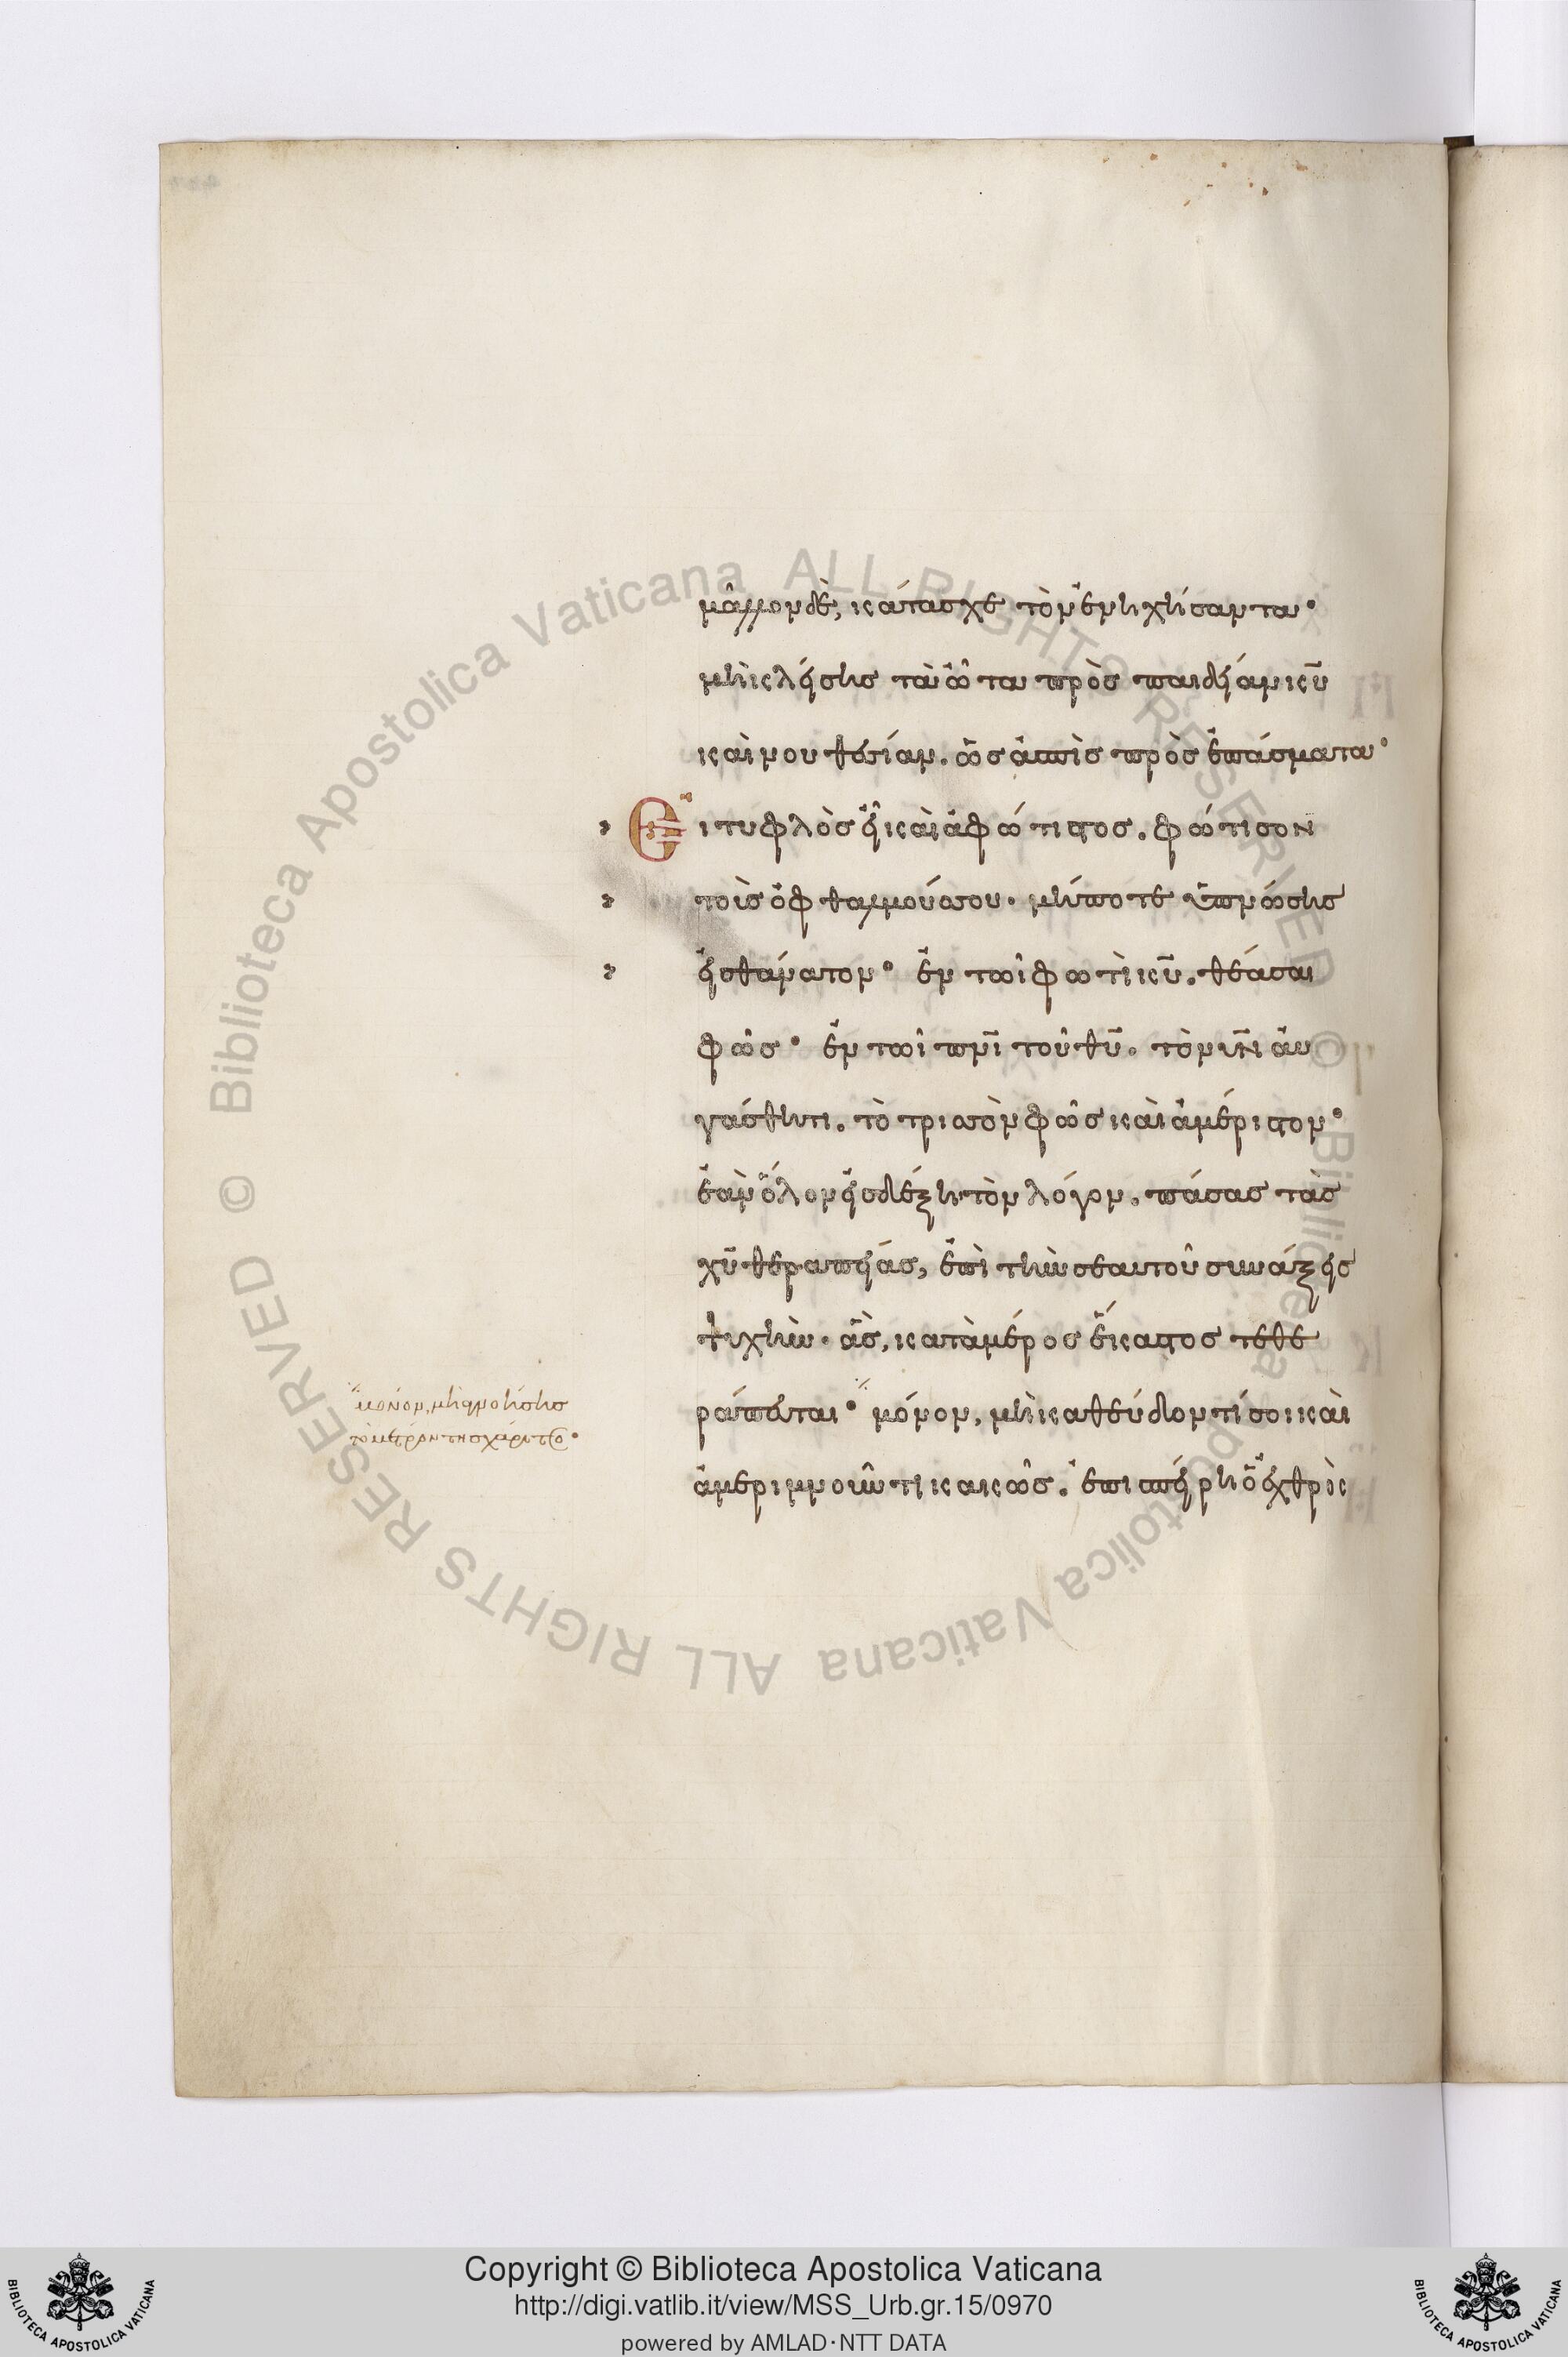 μᾶλλον δὲ, κάτασχε τὸν ἐνηχήσαντα·
μὴ κλείσηις τὰ ὦτα πρὸς παιδείαν κ̅υ̅
καὶ νουθεσίαν. ὡς ἀσπὶς πρὸς ἐπάσματα·
Εἰ τυφλὸς εἶ καὶ ἀφώτιστος. φώτισον
τοὺς ὀφθαλμούς σου. μήποτε ὑπνώσηις
εἰς θάνατον· ἐν τῶι φωτὶ κ̅υ̅. θέασαι
φῶς· ἐν τῶι π̅ν̅ι̅ τοῦ θ̅υ̅. τὸν υ̅ν̅ αὐ
γάσθητι. τὸ τρισσὸν φῶς καὶ ἀμέριστον·
ἐὰν ὅλον εἰσδέξηι τὸν λόγον. πάσας τὰς
χ̅υ̅ θεραπείας, ἐπὶ τὴν σεαυτοῦ συνάξεις
ψυχὴν. ἃς, κατὰ μέρος ἕκαστος τεθε
ράπευται· μόνον, μὴ καθεύδοντί σοι καὶ
ἀμεριμνοῦντι κακῶς. ἐπισπείρηι ὁ ἐχθρὸς
μόνον, μὴ ἀγνοήσηις
τὸ μέτρον τῆς χάριτος·
Copyright © Biblioteca Apostolica Vaticana
http://digi.vatlib.it/view/MSS_Urb.gr.15/0970
powered by AMLAD·NTT DATA
BIBLIOTECA APOSTOLICA VATICANA
BIBLIOTECA APOSTOLICA VATICANA
© Biblioteca Apostolica Vaticana ALL RIGHTS RESERVED © Biblioteca Apostolica Vaticana ALL RIGHTS RESERVED